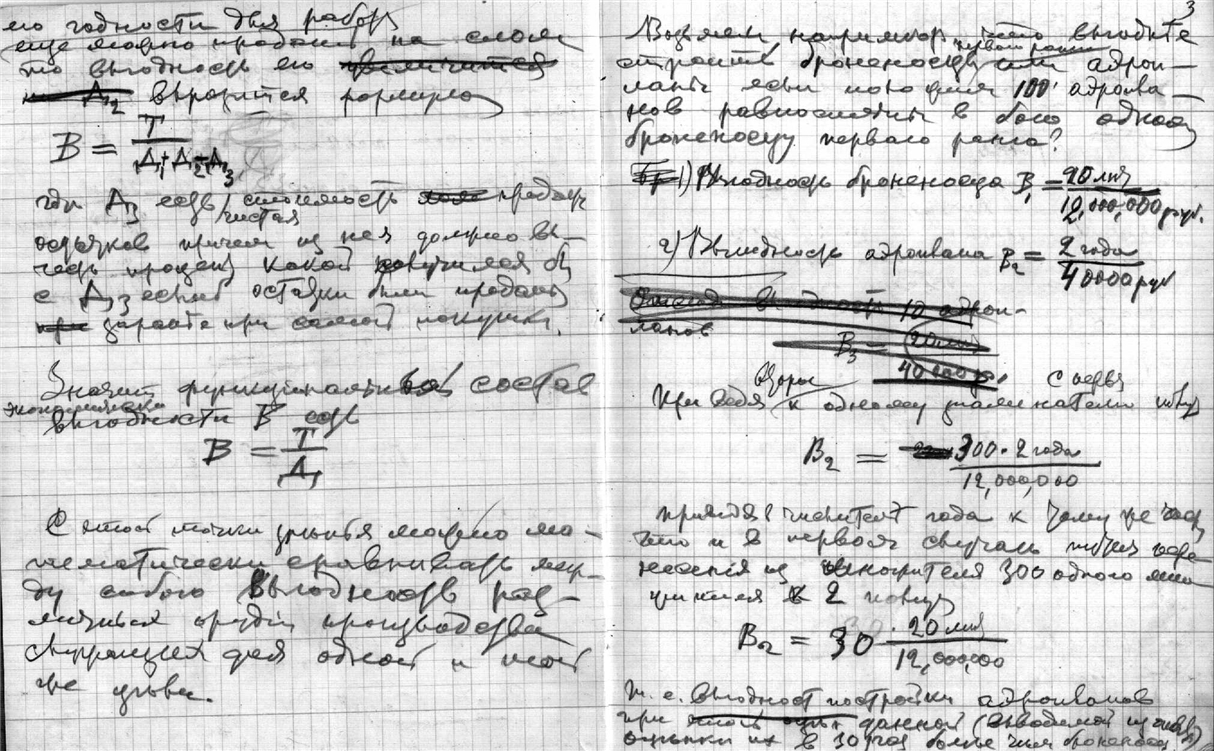 его годности для работы
еще можно продать на слом
то выгодность его увеличится
Д₂ выразится формулою
B = T / Д₁+Д₂-Д₃
где Д₃ есть чистая стоимость продажи
остатков причем из нея должно вы-
честь процент какой получился бы
с Д₃ если б остатки были проданы
заранее при самой покупке.
Значит функциональный состав
экономической выгодности B есть
B = T / Д₁
С этой точки зрения можно ма-
тематически сравнивать меж-
ду собою выгодность раз-
личных орудий производства
служащих для одной и той
же цели.
3
Возьмем например что выгоднее
строить броненосцы первого ранга или аэроп-
ланы если положим 100 аэропла-
нов равносильны в бою одному
броненосцу первого ранга?
1) Выгодность броненосца B₁ = 20 лет / 12,000,000 руб.
2) Выгодность аэроплана B₂ = 2 года / 40000 руб
10 аэроп-
ланов
B₃ = 20 лет / 40000 р.
Приведя к одному знаменателю
B₂ = 300 · 2 года / 12,000,000
приведя числитель года к тому же числу
что и в первом случае путем пере-
несения из множителя 300 одного мно-
жителя к 2
B₂ = 30 · 20 лет / 12,000,000
т. е. выгодность постройки аэропланов
при данной
оценки их в 30 раз больше чем броненосцев